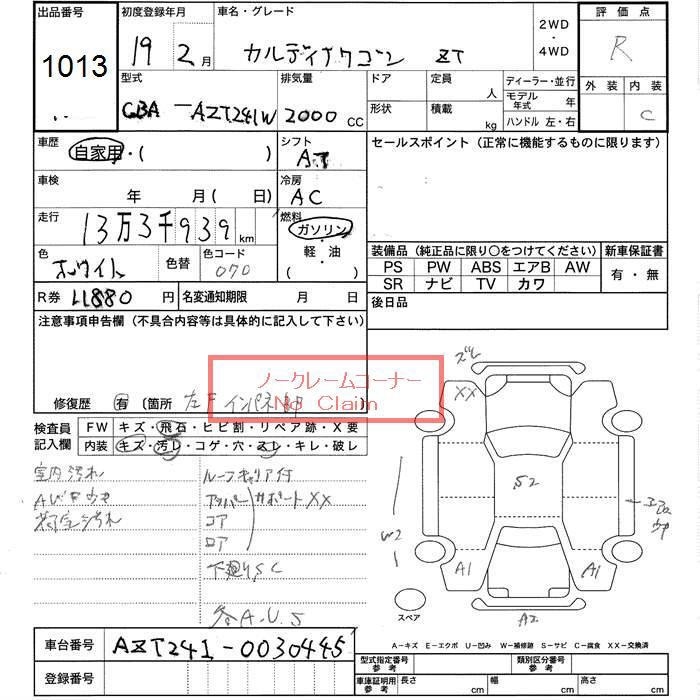 出品番号 初度登録年月 車名・グレード 2WD・4WD 評価点
1013 19 2月 カルディナワゴン ZT R
外装 内装
C
型式 排気量 ドア 定員 人 ディーラー・並行
CBA-AZT241W 2000 CC 形状 積載 kg モデル年式 年
ハンドル 左・右
車歴 自家用・( ) シフト AT セールスポイント (正常に機能するものに限ります)
車検 年 月( 日) 冷房 AC
走行 13万3千939 km 燃料 ガソリン・軽・油 ( )
色 ホワイト 色替 色コード 070
装備品 (純正品に限り○をつけてください) 新車保証書
PS PW ABS エアB AW 有・無
SR ナビ TV カワ
R券 11880 円 名変通知期限 月 日 後日品
注意事項申告欄 (不具合内容等は具体的に記入して下さい)
ノークレームコーナー
No Claim
修復歴 有 (箇所 左F インパネ )
ズレ
XX
検査員記入欄 FW キズ・飛石・ヒビ割・リペア跡・X要
内装 キズ・汚レ・コゲ・穴・スレ・キレ・破レ
室内汚れ ルーフキャリア付
アッパーサポートXX
荷室汚れ コア
ロア
下廻りSC
各A.U.S
S2
W2
A1 A1
スペア A2
車台番号 AZT241-0030445
A-キズ E-エクボ U-凹み W-補修跡 S-サビ C-腐食 XX-交換済
登録番号
型式指定番号 参考 類別区分番号 参考
車庫証明用 参考 長さ cm 幅 cm 高さ cm